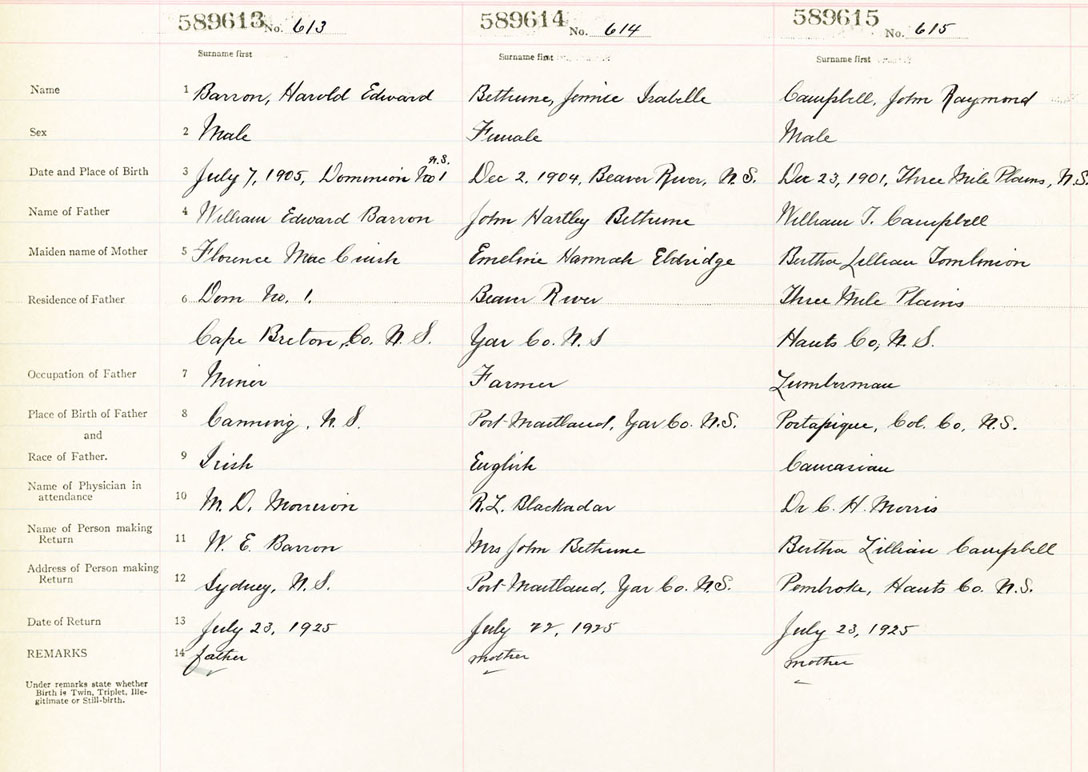 589613 No. 613 589614 No. 614 589615 No. 615
Surname first Surname first Surname first
Name 1 Barron, Harold Edward Bethune, Jennie Isabelle Campbell, John Raymond
Sex 2 Male Female Male
N.S.
Date and Place of Birth 3 July 7, 1905, Dominion No 1 Dec 2, 1904, Beaver River, N.S. Dec 23, 1901, Three Mile Plains, N.S.
Name of Father 4 William Edward Barron John Hartley Bethune William T. Campbell
Maiden name of Mother 5 Florence Mac Cuish Emeline Hannah Eldridge Bertha Lillian Tomlinson
Residence of Father 6 Dom No. 1. Beaver River Three Mile Plains
Cape Breton, Co. N.S. Yar Co. N.S Hants Co, N.S.
Occupation of Father 7 Miner Farmer Lumberman
Place of Birth of Father 8 Canning, N.S. Port Maitland, Yar Co. N.S. Portapique, Col. Co, N.S.
and
Race of Father. 9 Irish English Caucasian
Name of Physician in
attendance 10 M. D. Morrison R.L. Blackadar Dr C. H. Morris
Name of Person making
Return 11 W. E. Barron Mrs John Bethune Bertha Lillian Campbell
Address of Person making
Return 12 Sydney, N.S. Port Maitland, Yar Co. N.S. Pembroke, Hants Co. N.S.
Date of Return 13 July 23, 1925 July 22, 1925 July 23, 1925
REMARKS 14 father mother mother
Under remarks state whether
Birth is Twin, Triplet, Ille-
gitimate or Still-birth.